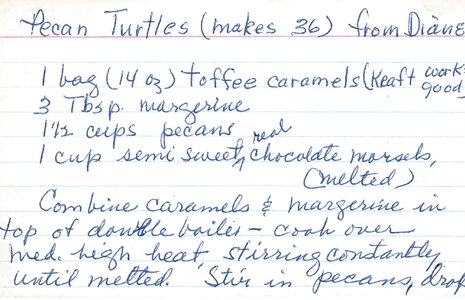 Pecan Turtles (makes 36) from Diane
1 bag (14 oz) toffee caramels (Kraft works
good)
3 Tbsp. margerine
1½ cups pecans
1 cup semi sweet, real chocolate morsels,
(melted)
Combine caramels & margerine in
top of double boiler - cook over
med. high heat, stirring constantly
until melted. Stir in pecans, drop